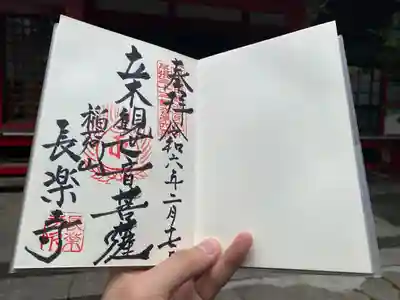 奉拝 令和六年二月十七日
立木観世音菩薩
稲荷山
長楽寺